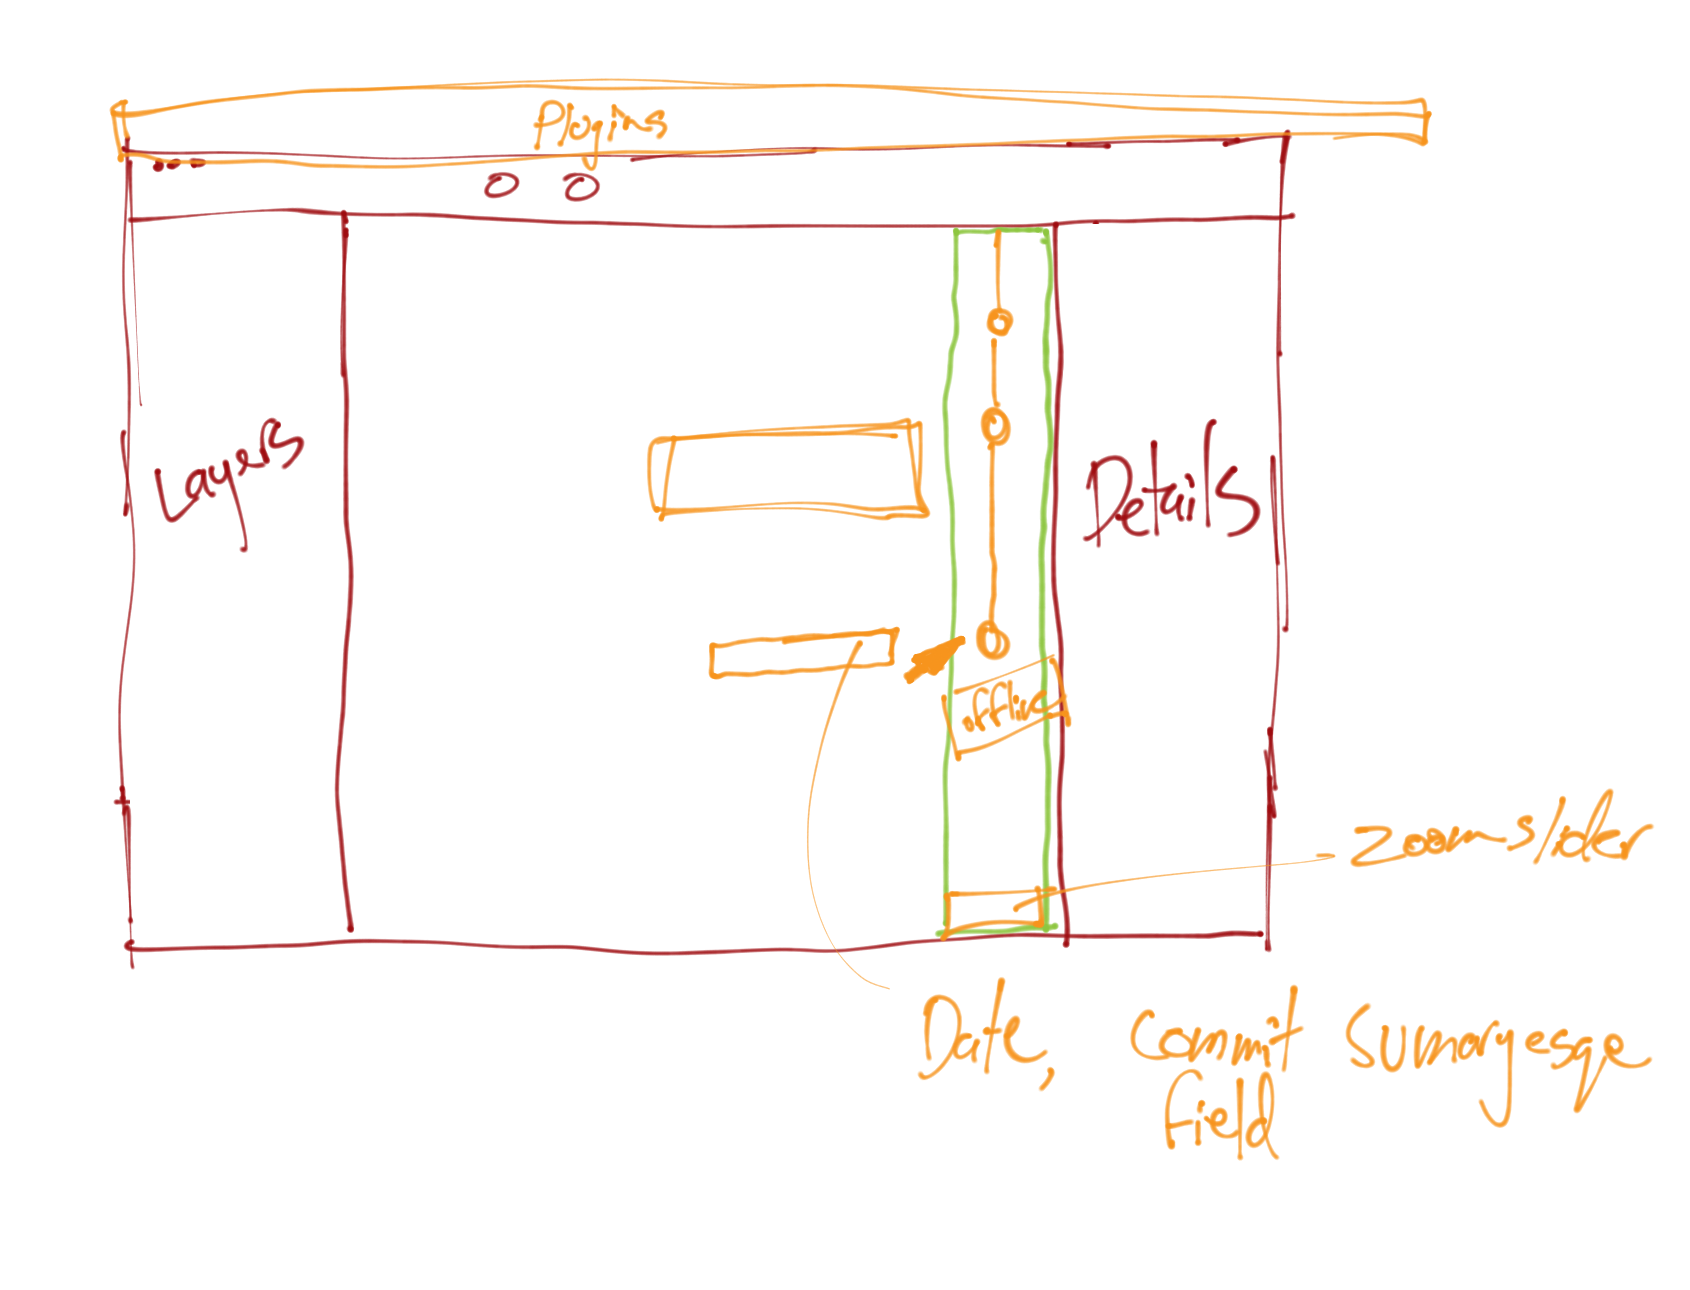 Plugins
Layers
Details
offline
zoom slider
Date, Commit Sumaryesqe
field